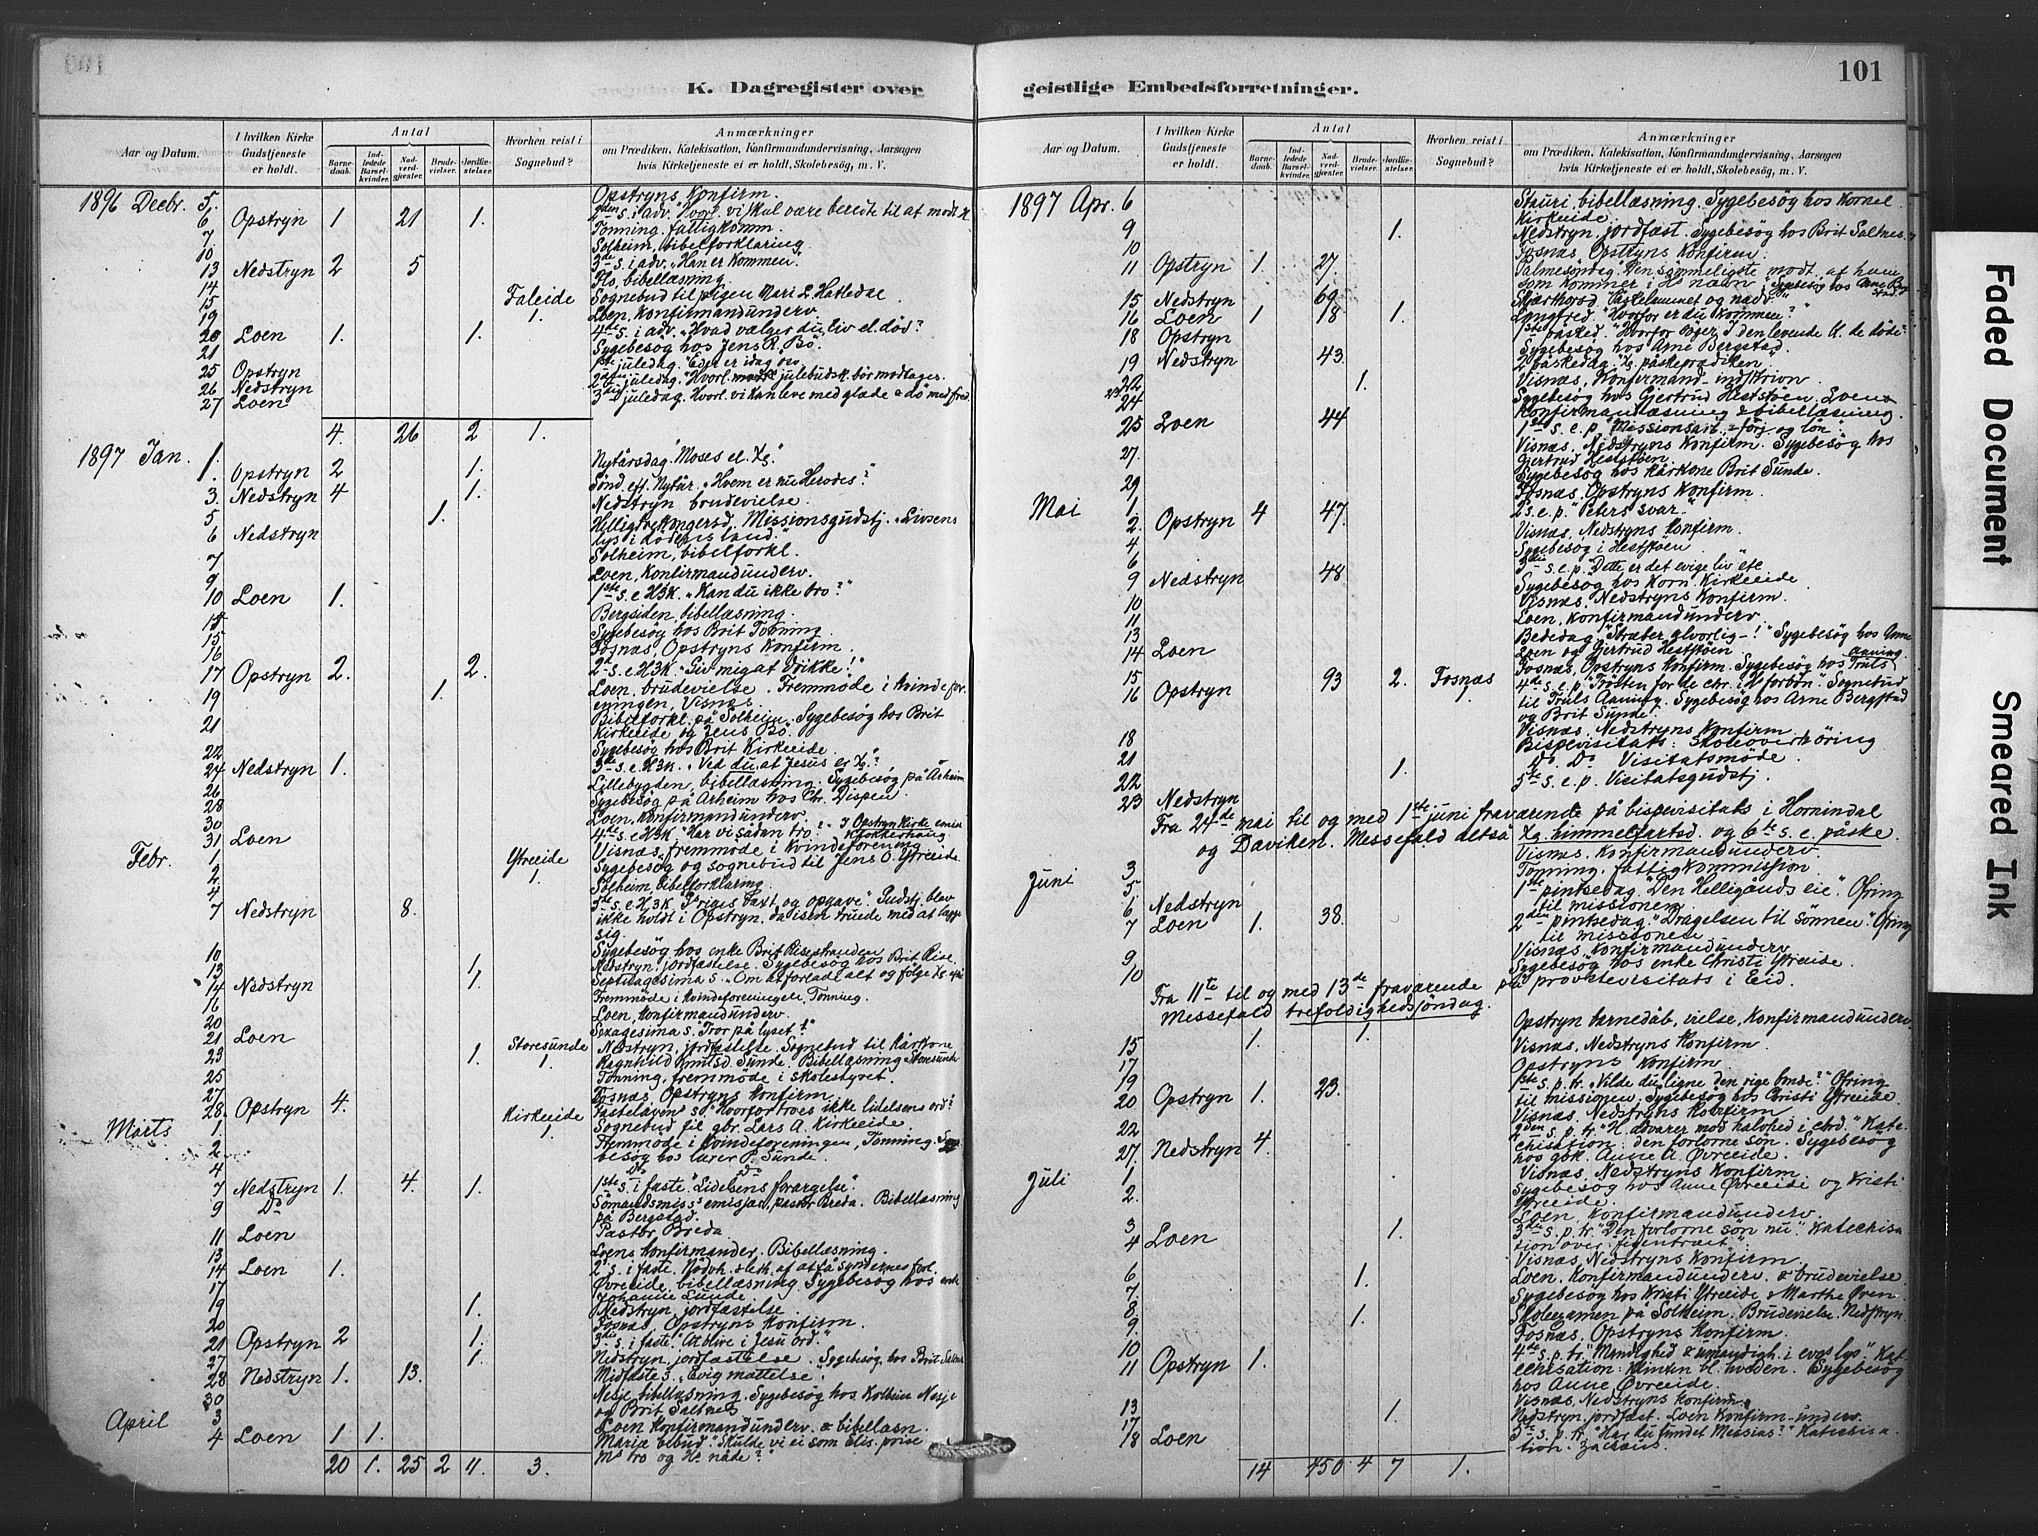 101
K. Dagregister over geistlige Embedsforretninger.
Aar og Datum. | I hvilken Kirke Gudstjeneste er holdt. | Antal | Barnedaab. | Indledede Barselkvinder. | Nadverdgjæster. | Brudevielser. | Jordfæstelser. | Hvorhen reist i Sognebud? | Anmærkninger om Prædiken, Katekisation, Konfirmandundervisning, Aarsagen hvis Kirketjeneste ei er holdt, Skolebesøg, m. V.
1896 Decbr. 5. Opstryns Konfirm.
6 Opstryn 1 21 1. 2den s. i adv. "Hvorl. vi skul være beredte til at modt. K.
7 Tonning, fattigkomm.
10 Solheim, bibelforklaring.
13 Nedstryn 2 5 3de s. i adv. "Han er kommen".
14 Flo, bibellæsning.
15 Faleide 1. Sognebud til pigen Mari L. Hatledal.
19 Loen, Konfirmandunderv.
20 Loen 1. 1. 4de s. i adv. "Hvad vælger du, liv el. død?
21 Sygebesøg hos Jens R. Bø.
25 Opstryn 1ste juledag. "Eder er idag
26 Nedstryn 2den juledag. "Hvorl. julebudsk. bør modtages.
27 Loen 3die juledag. Hvorl. vi kan leve med glæde & dø med fred.
4. 26 2 1.
1897 Jan. 1. Opstryn 2 1. Nytårsdag. "Moses el. Xs."
3. Nedstryn 4 1. Sønd. eft. Nytår. "Hvem er nu Herodes?"
5 1. Nedstryn brudevielse.
6 Nedstryn Helligtrekongersd. Missionsgudstj. "Livsens lys i dødens land."
7 Solheim, bibelforkl.
9 Loen, Konfirmandunderv.
10 Loen 1. 1ste s. e. H3K. "Kan du ikke tro?"
Bergsiden, bibellæsning.
15 Sygebesøg hos Brit Tonning.
16 Fosnæs, Opstryns Konfirm.
17 Opstryn 2. 2. 2d s. e. H3K. "Giv mig at drikke!"
19 1. Loen, brudevielse. Fremmøde i kvindeforeningen, Visnæs.
21 Bibelforkl. på Solheim. Sygebesøg hos Brit Kirkeeide og Jens Bø.
22 Sygebesøg hos Brit Kirkeeide.
24 Nedstryn 1. 3de s. e. H3K. "Ved du, at Jesus er Xs?
26 Lillebygden, bibellæsning. Sygebesøg på Årheim
28 Sygebesøg på Årheim hos Chr. Dispen.
30 Loen, Konfirmandunderv.
31 Loen 4de s. e. H3K "Har vi sådan tro?
Febr. 1 Visnæs, fremmøde i kvindeforening
2 Ytreeide 1. Sygebesøg og sognebud til Jens O. Ytreeide.
4 Solheim, bibelforklaring.
7 Nedstryn 8. 5te s. e. H3K Gudstj. blev ikke holdt i Opstryn, da isen truede med at lægge sig.
10 Sygebesøg hos enke Brit Risestranden
13 1. Nedstryn, jordfæstelse. Sygebesøg hos Brit Rise.
14 Nedstryn 1. Septuagesima s. "Om at forlade alt og følge Xs
16 Fremmøde i kvindeforeningen, Tonning.
20 Loen, Konfirmandunderv.
21 Loen Sexagesima s. "Tror på lyset!"
23 1. Storesunde 1. Nedstryn, jordfæstelse. Sognebud til kårkone Ragnhild Sunde. Bibellæsning Storesunde
25 Tonning, fremmøde i skolestyret.
27 Fosnæs, Opstryns Konfirm.
28. Opstryn 4. Fastelavens s. "Hvorfor troes ikke lidelsens ord?
Marts 1. Kirkeeide 1. Sognebud til gbr. Lars A. Kirkeeide.
2 Fremmøde i kvindeforeningen, Tonning. Sygebesøg hos lærer P. Sunde.
4 Do Do
7 Nedstryn 1. 4. 1. 1ste s. i faste. "Lidelsens forargelse".
9 Do Sømandsmiss's emissjær, pastor Breda. Bibellæsning på Bergstad.
11 Loen Pastor Breda
13 Loens Konfirmander. Bibellæsning.
14 Loen 1. 2d s. i faste.
17 Øvreeide, bibellæsning. Sygebesøg hos enke Johanne Sunde.
19 1. Nedstryn, jordfæstelse.
20 Fosnæs, Opstryns Konfirm.
21 Opstryn 2 1. 3die s. i faste. "At blive i Jesu ord."
27 1. Nedstryn, jordfæstelse. Sygebesøg hos Brit Saltnes
28 Nedstryn 1. 13. Midfaste s. "Evig mættelse".
30 Nesje, bibellæsning. Sygebesøg hos Kolbein Nesje og Brit Saltnes
April 3 Loen Konfirmandunderv. & bibellæsn.
4 Loen 1 1. Mariæ bebud. "Skulde vi ei som Elis. prise Ms tro og Hs nåde?"
20 1. 25 2 11. 3.
1897 Apr. 6 Stauri, bibellæsning. Sygebesøg hos Kornel. Kirkeeide.
9 1. Nedstryn, jordfæst. Sygebesøg hos Brit Saltnes.
10 Fosnæs, Opstryns Konfirm.
11 Opstryn 1. 27. Palmesøndag. "Den sømmeligste modt. af ham som kommer i Hs navn".
15 Nedstryn 69. Skjærtorsd. "Påskelammet og nadv."
16 Loen 1 18 1. Langfred. "Hvorfor er du kommen?"
18 Opstryn 1ste påsked. "Hvorfor søger I den levende bl. de døde?
Sygebesøg hos Arne Bergstad.
19 Nedstryn 43. 2 påskedag. "Xs påskeprædiken"
22 1. Visnæs, Konfirmand-indskrivn
23 Sygebesøg hos Gjertrud Heststøen. Loens
24 Konfirmantlæsning & bibellæsning.
25 Loen 44 1ste s. e. p. "Missionsarb. - og løn".
27. Visnæs, Nedstryns Konfirm. Sygebesøg hos Gjertrud Heststøen.
29 Sygebesøg hos kårkone Brit Sunde.
Mai 1. Fosnæs, Opstryns Konfirm.
2. Opstryn 4 47. 2 s. e. p. "Peters svar."
4 Visnæs, Nedstryns Konfirm.
6 Sygebesøg i Heststøen.
9 Nedstryn 48 3die s. e. p. "Dette er det evige liv" etc
10 Sygebesøg hos Korn. Kirkeeide.
11 Visnæs, Nedstryns Konfirm.
13 Loen, Konfirmandunderv.
14 Loen Bededag. "Stræber alvorlig -!" Sygebesøg hos Anne Loen og Gjertrud Heststøen
15 Fosnæs, Opstryns Konfirm. Sygebesøg hos Truls Aaning.
16 Opstryn 93 2. Fosnæs 1. 4de s. e. p. "Trøsten for de chr. i H. forbøn". Sognebud til Truls Aaning. Sygebesøg hos Arne Bergstad og Brit Sunde.
18 Visnæs, Nedstryns Konfirm.
21 Bispevisitats: Skoleoverhøring
22 1. Do. Do Visitatsmøde.
23 Nedstryn 5te s. e. p. Visitatsgudstj.
Fra 24de mai til og med 1ste juni fraværende på bispevisitats i Hornindal
og Daviken. Messefald altså Xs himmelfartsd. og 6te s. e. påske.
Juni 3 Visnæs, Konfirmandunderv.
5 Tonning, fattigkommission.
6 Nedstryn 1ste pintsedag. "Den Helligånds eie". Ofring til missionen.
7 Loen 1. 38. 2den pintsedag. "Dragelsen til sønnen". Ofring til missionen.
9. Visnæs, Konfirmandunderv.
10 Sygebesøg hos enke Christi Ytreeide.
Fra 11te til og med 13de fraværende på provstevisitats i Eid.
Messefald trefoldighedssøndag.
15 1. 1. Opstryn barnedåb, vielse, Konfirmandunderv.
17 Visnæs, Nedstryns Konfirm.
19 Opstryns Konfirm
20 Opstryn 1. 23. 1ste s. p. tr. "Vilde du ligne den rige mand?" Ofring til missionen. Sygebesøg hos Kristi Ytreeide.
22 Visnæs, Nedstryns Konfirm
27. Nedstryn 4. 2den s. p. tr. "H. advarer mod halvhed i chrd." Katechisation: den forlorne søn. Sygebesøg hos gbk. Anne A. Øvreeide.
Juli 1 Visnæs, Nedstryns Konfirm.
2. Sygebesøg hos Anne Øvreeide og Kristi Ytreeide.
3 1. Loen, Konfirmandunderv.
4 Loen 3die s. p. tr. "Den forlorne søn nu". Katechisation over figentræet".
6 1. Visnæs, Nedstryns Konfirm.
7. Loen, Konfirmandunderv. & brudevielse.
8. 1. Sygebesøg hos Kristi Ytreeide & Marthe Øvren
9. Skoleexamen på Solheim. Brudevielse. Nedstryn.
10 Fosnæs, Opstryns Konfirm.
11 Opstryn 1. 4de s. p. tr. "Myndighed & umyndigh. i lys". Katechisation: klinten bl. hveden. Sygebesøg hos Anne Øvreeide.
13 Visnæs, Nedstryns Konfirm.
17 1. Nedstryn, jordfæst. Loen Konfirm-underv.
18 Loen 5te s. p. tr. "Har du fundet Messias?" Katechisation. Zachæus.
14 450 4 7 1.
Faded Document
Smeared Ink